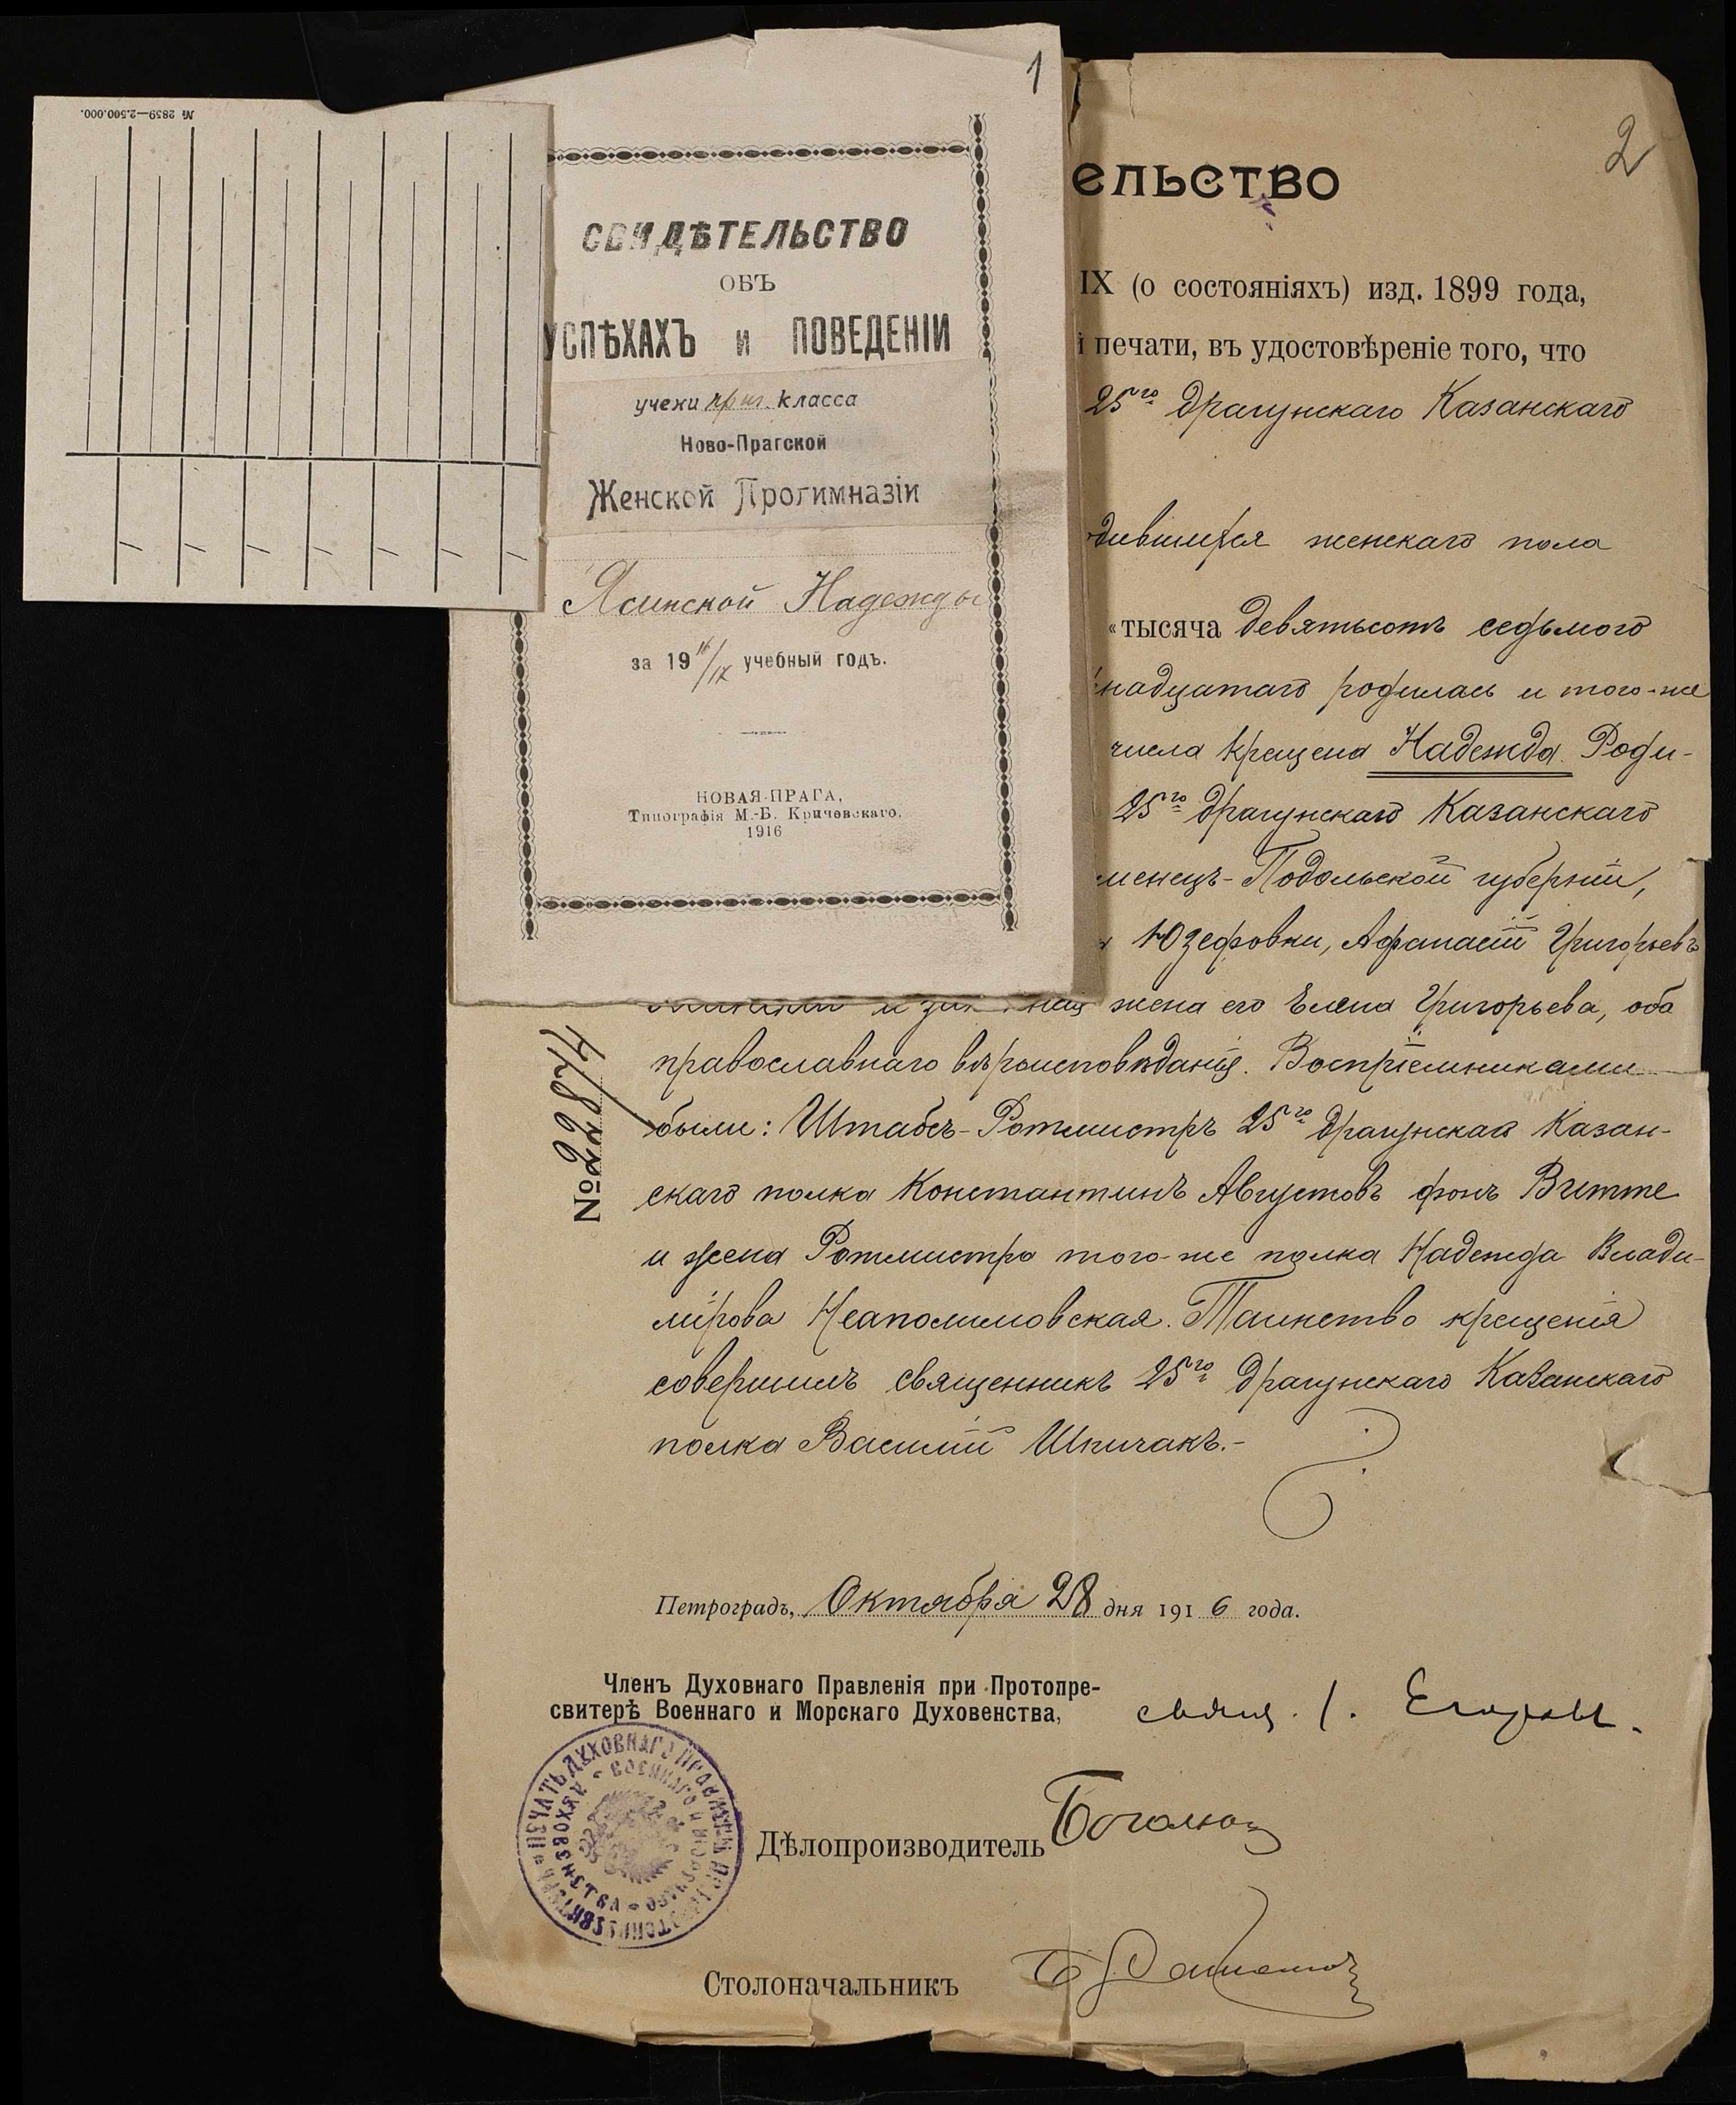 № 2859—2.500.000.
1
СВИДѢТЕЛЬСТВО
ОБЪ
УСПѢХАХЪ и ПОВЕДЕНІИ
учени приг. класса
Ново-Прагской
Женской Прогимназіи
Ясинской Надежды
за 19 16/17 учебный годъ.
НОВАЯ-ПРАГА,
Типографія М.-Б. Кричевскаго.
1916
2
ельство
IX (о состояніяхъ) изд. 1899 года,
й печати, въ удостовѣреніе того, что
25го драгунскаго Казанскаго
дившихся женскаго пола
тысяча девятьсотъ седьмого
надцатаго родилась и того-же
числа крещена Надежда. Роди-
25го драгунскаго Казанскаго
менецъ-Подольской губерніи,
Юзефовки, Афанасій Григорьевъ
жена его Елена Григорьева, оба
православнаго вѣроисповѣданія. Воспріемниками
были: Штабсъ-Ротмистръ 25го драгунскаго Казан-
скаго полка Константинъ Августовъ фонъ Витте
и жена Ротмистра того-же полка Надежда Влади-
мірова Неаполимовская. Таинство крещенія
совершилъ священникъ 25го драгунскаго Казанскаго
полка Василій Шпичакъ.-
№ 22874
Петроградъ, Октября 28 дня 1916 года.
Членъ Духовнаго Правленія при Протопре-
свитерѣ Военнаго и Морскаго Духовенства,
свящ. І. Егоровъ.
ПЕЧАТЬ ДУХОВНАГО ПРАВЛЕНІЯ ПРИ ПРОТОПРЕСВИТЕРѢ
ВОЕННАГО И МОРСКАГО ДУХОВЕНСТВА
Дѣлопроизводитель
Столоначальникъ